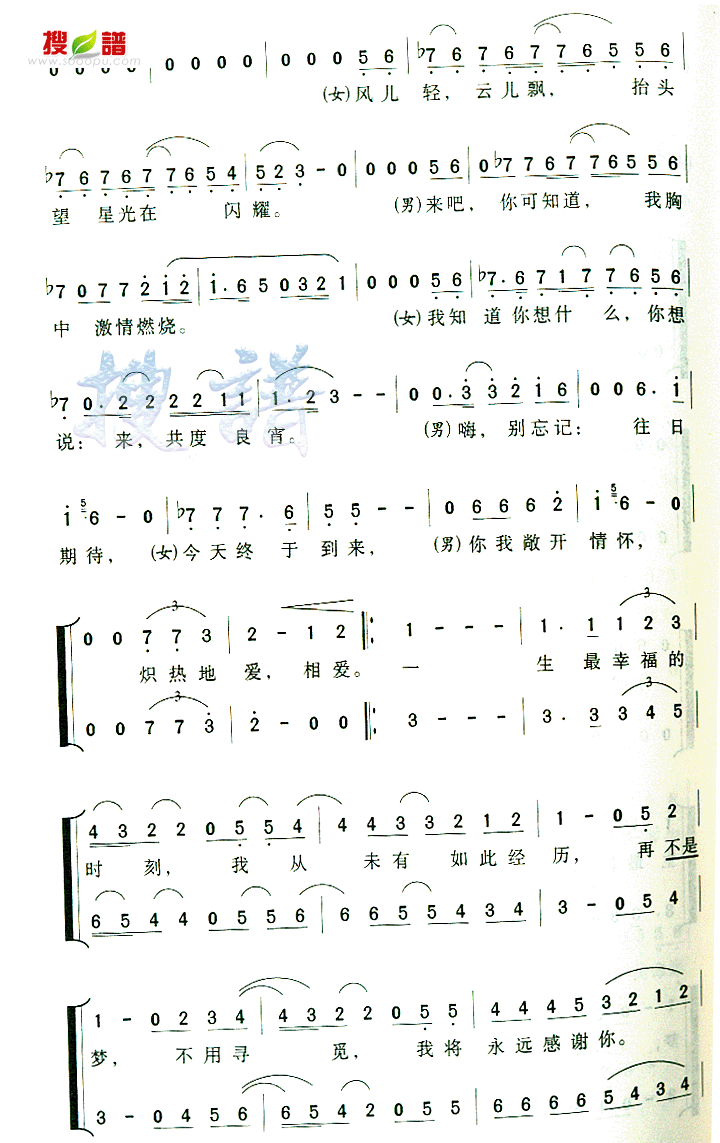 搜谱
www.sooopu.com
0 0 0 0 | 0 0 0 0 | 0 0 0 5 6 | ♭7 6 7 6 7 7 6 5 5 6
(女)风儿 轻，云儿飘， 抬头
♭7 6 7 6 7 7 6 5 4 | 5 2 3 - 0 | 0 0 0 5 6 | 0 ♭7 7 6 7 7 6 5 5 6
望 星光在 闪耀。 (男)来吧，你可知道， 我胸
♭7 0 7 7 2 1 2 | 1. 6 5 0 3 2 1 | 0 0 0 5 6 | ♭7. 6 7 1 7 7 6 5 6
中 激情燃烧。 (女)我知 道你想什 么，你想
搜譜
♭7 0. 2 2 2 2 1 1 | 1. 2 3 - - | 0 0. 3 3 2 1 6 | 0 0 6. 1
说：来，共度良宵。 (男)嗨，别忘记：往日
1 5 6 - 0 | ♭7 7 7. 6 | 5 5 - - | 0 6 6 6 2 | 1 5 6 - 0
期待， (女)今天终 于到来， (男)你我敞开 情怀，
3 3
0 0 7 7 3 | 2 - 1 2 𝄆 1 - - - | 1. 1 1 2 3
炽热地 爱，相爱。一 生 最幸福的
3 3
0 0 7 7 3 | 2 - 0 0 𝄆 3 - - - | 3. 3 3 4 5
4 3 2 2 0 5 5 4 | 4 4 3 3 2 1 2 | 1 - 0 5 2
时 刻， 我 从 未有 如此经 历， 再不是
6 5 4 4 0 5 5 6 | 6 6 5 5 4 3 4 | 3 - 0 5 4
1 - 0 2 3 4 | 4 3 2 2 0 5 5 | 4 4 4 5 3 2 1 2
梦， 不用寻 觅， 我将 永远感谢你。
3 - 0 4 5 6 | 6 5 4 2 0 5 5 | 6 6 6 6 5 4 3 4